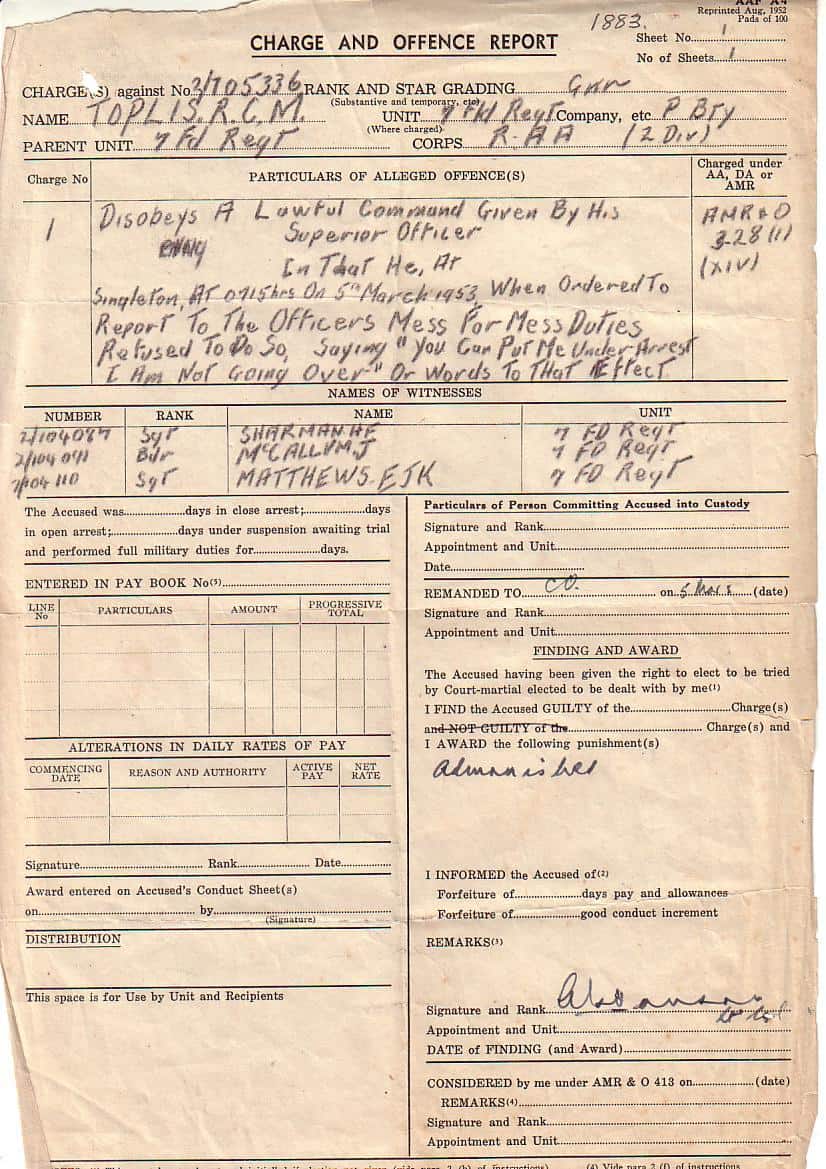 AAF A4
Reprinted Aug, 1952
Pads of 100
1883.
CHARGE AND OFFENCE REPORT
Sheet No. 1
No of Sheets 1
CHARGE(S) against No. 2/705336 RANK AND STAR GRADING Gnr
(Substantive and temporary, etc)
NAME TOPLIS. R.C.M. UNIT 7 Fd Regt Company, etc P Bty
(Where charged)
PARENT UNIT 7 Fd Regt CORPS R.A A (2 Div)
Charge No
PARTICULARS OF ALLEGED OFFENCE(S)
Charged under
AA, DA or
AMR
1
Disobeys A Lawful Command Given By His
Superior Officer
In That He, At
Singleton, AT 0715hrs On 5th March 1953, When Ordered To
Report To The Officers Mess For Mess Duties
Refused To Do So, Saying "You Can Put Me Under Arrest
I Am Not Going Over" Or Words To That Effect
AMR & O
328 (1)
(XIV)
NAMES OF WITNESSES
NUMBER RANK NAME UNIT
2/104087 Sgt SHARMAN. HF 7 FD Regt
2/104091 Bdr McCALLUM. J 7 FD Regt
2/104110 Sgt MATTHEWS. EJK 7 FD Regt
The Accused was days in close arrest; days
in open arrest; days under suspension awaiting trial
and performed full military duties for days.
ENTERED IN PAY BOOK No(5)
LINE No PARTICULARS AMOUNT PROGRESSIVE TOTAL
ALTERATIONS IN DAILY RATES OF PAY
COMMENCING DATE REASON AND AUTHORITY ACTIVE PAY NET RATE
Signature Rank Date
Award entered on Accused's Conduct Sheet(s)
on by
(Signature)
DISTRIBUTION
This space is for Use by Unit and Recipients
Particulars of Person Committing Accused into Custody
Signature and Rank
Appointment and Unit
Date
REMANDED TO CO. on 5 Mar (date)
Signature and Rank
Appointment and Unit
FINDING AND AWARD
The Accused having been given the right to elect to be tried
by Court-martial elected to be dealt with by me(1)
I FIND the Accused GUILTY of the Charge(s)
and NOT GUILTY of the Charge(s) and
I AWARD the following punishment(s)
Admonished
I INFORMED the Accused of(2)
Forfeiture of days pay and allowances
Forfeiture of good conduct increment
REMARKS(3)
Signature and Rank
Lt Col
Appointment and Unit
DATE of FINDING (and Award)
CONSIDERED by me under AMR & O 413 on (date)
REMARKS(4)
Signature and Rank
Appointment and Unit
(4) Vide para 2 (f) of instructions